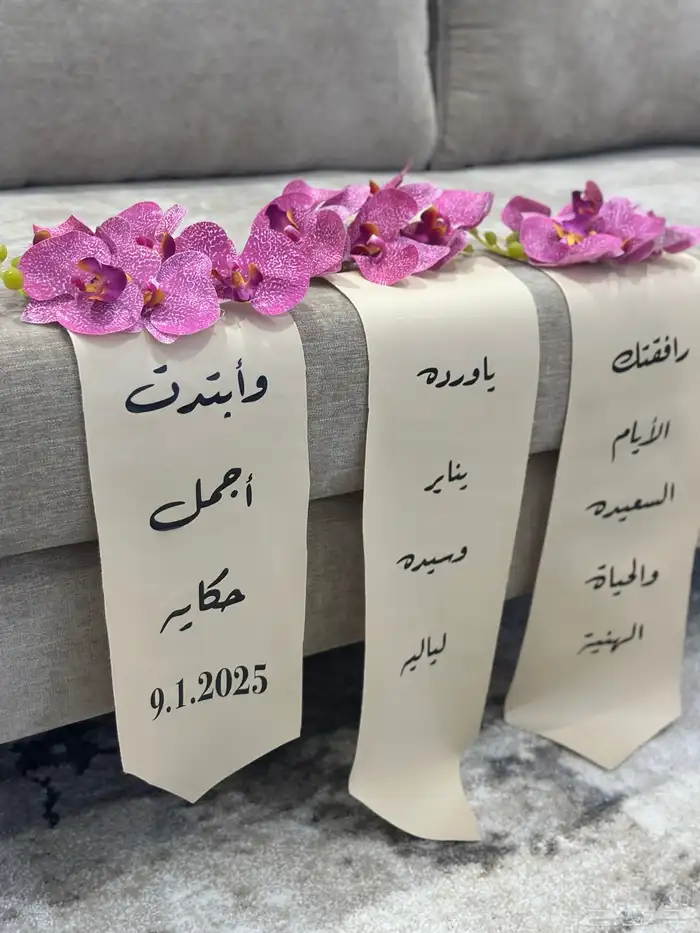 وأبتدت
أجمل
حكايه
9.1.2025
ياورده
يناير
وسيده
لياليه
رافقتك
الأيام
السعيده
والحياة
الهنية